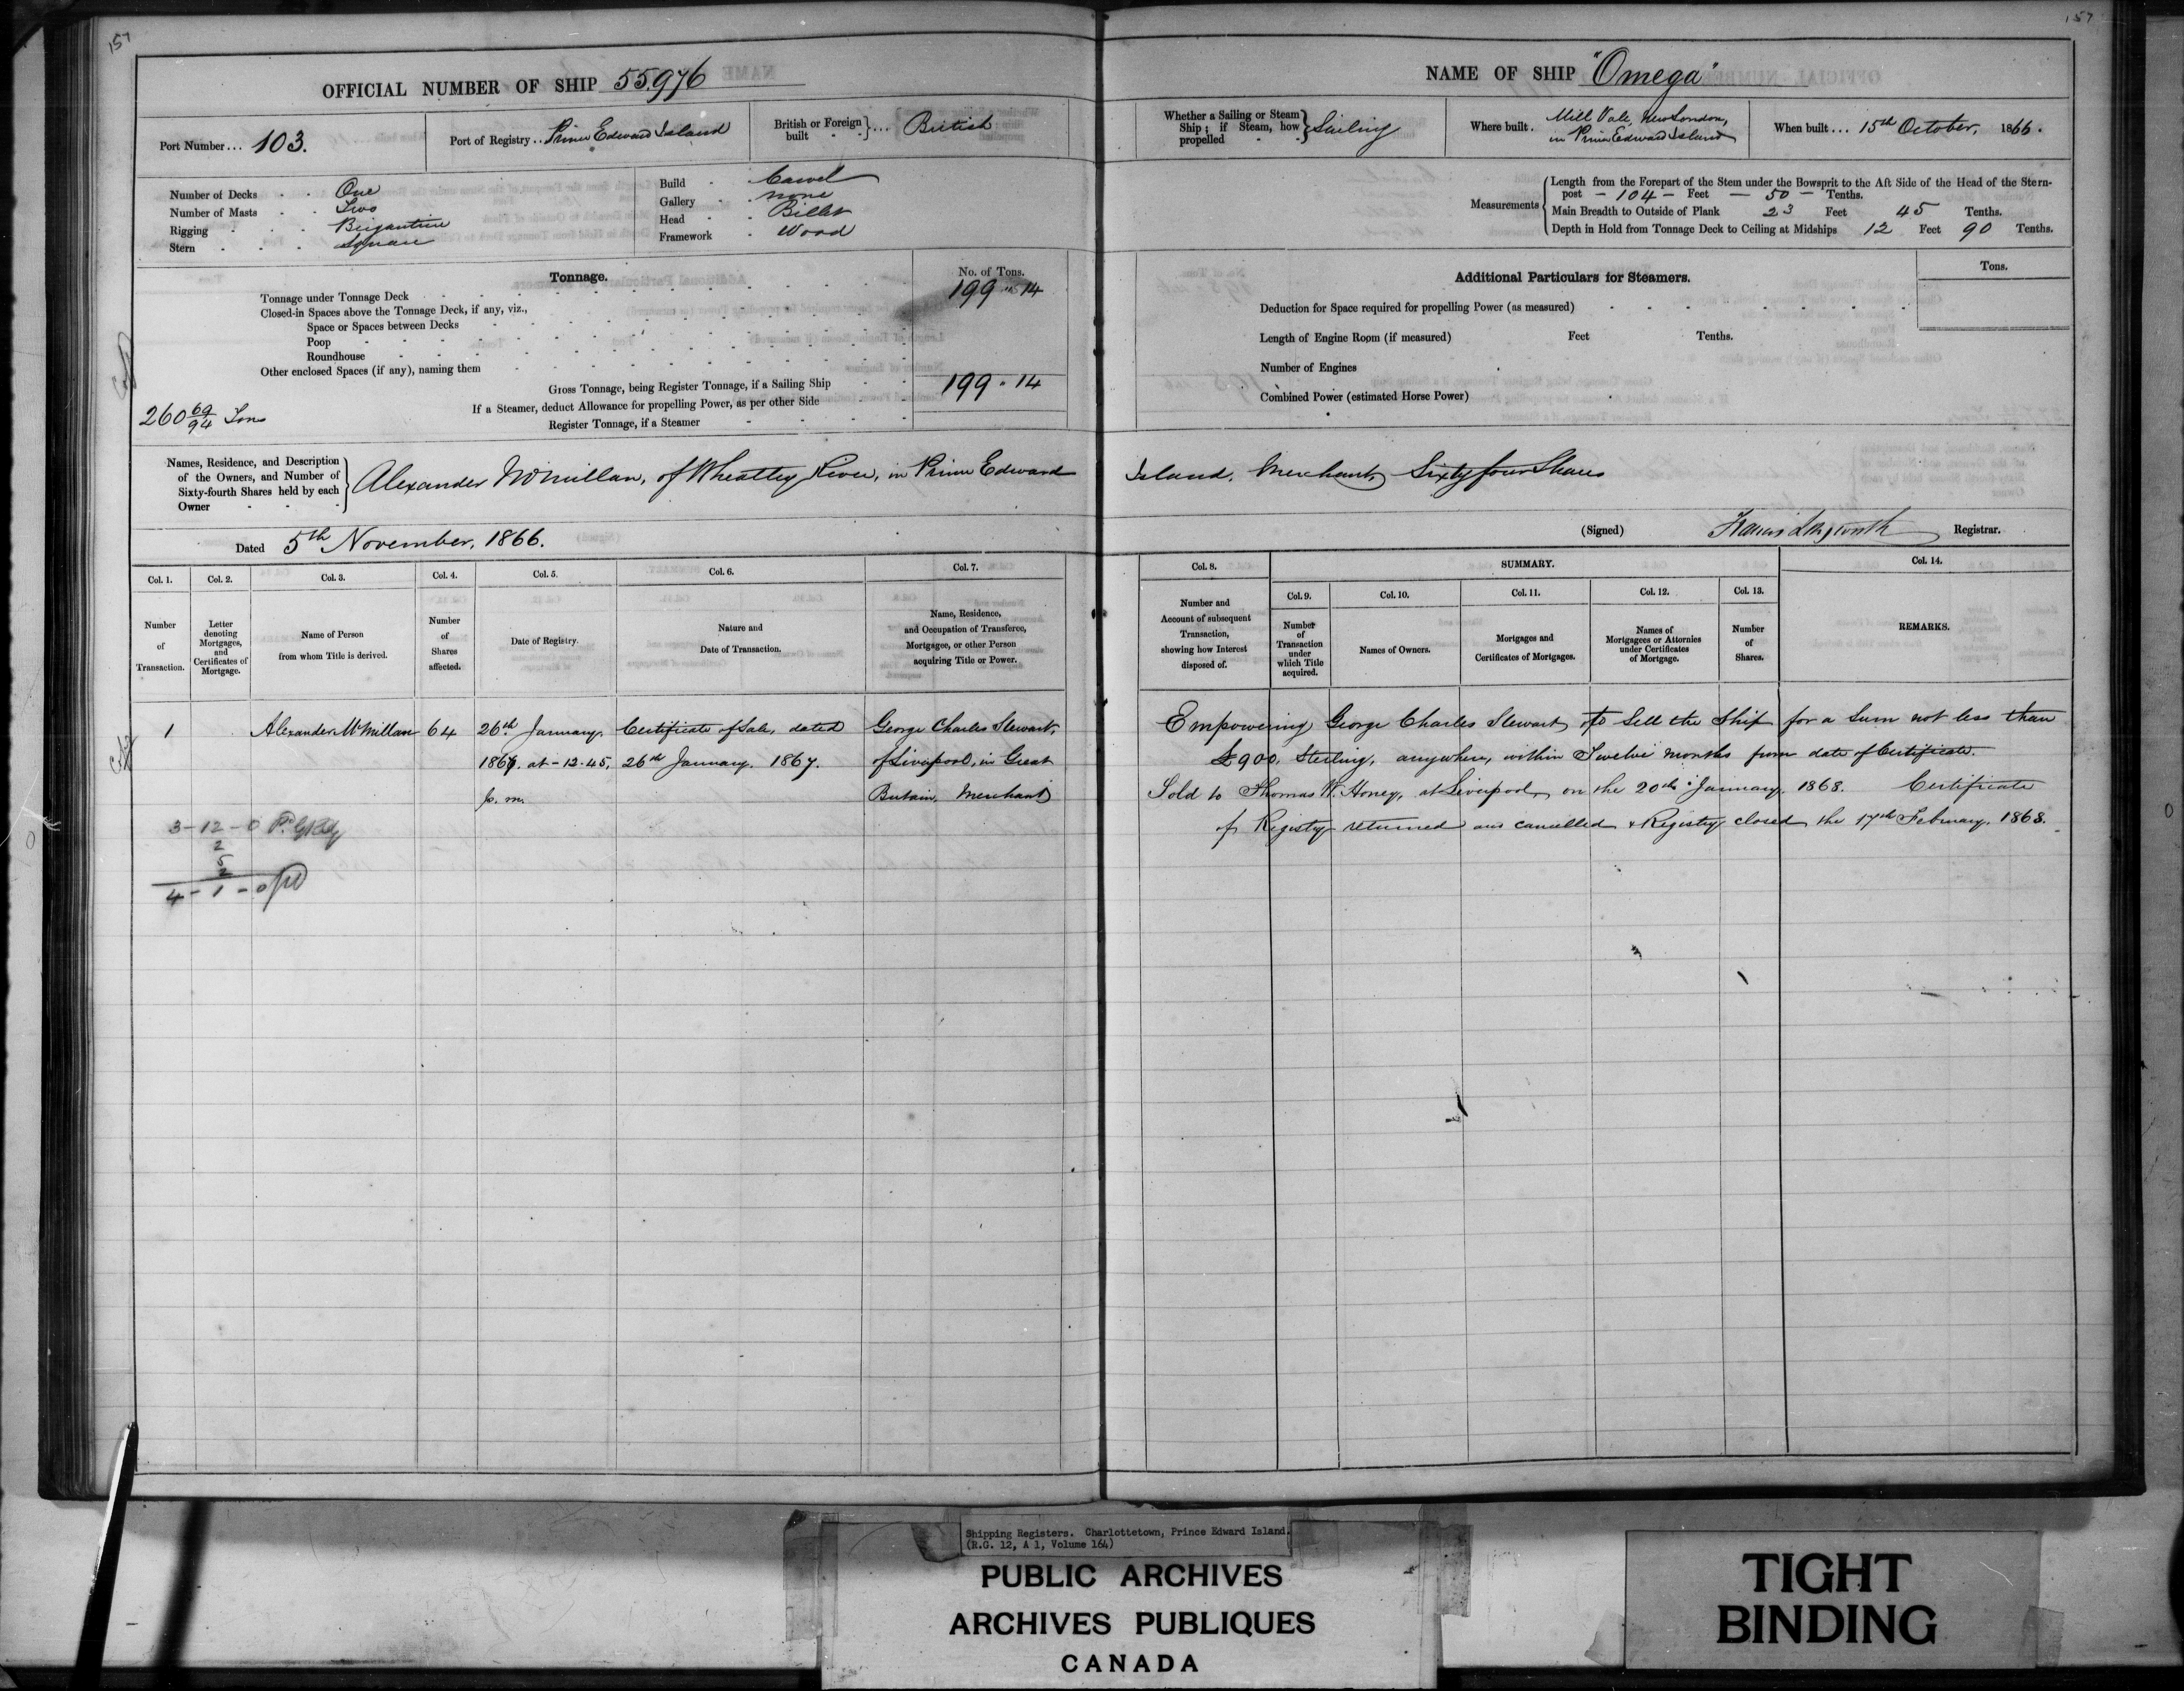 157
OFFICIAL NUMBER OF SHIP 55976
Port Number... 103.
Port of Registry.. Prince Edward Island
British or Foreign built } ... British
Number of Decks - - One
Number of Masts - - Two
Rigging - - - Brigantine
Stern - - - Square
Build - Carvel
Gallery - none
Head - - Billet
Framework - Wood
Tonnage.
No. of Tons.
Tonnage under Tonnage Deck 199 " 14
Closed-in Spaces above the Tonnage Deck, if any, viz.,
Space or Spaces between Decks
Poop
Roundhouse
Other enclosed Spaces (if any), naming them
Gross Tonnage, being Register Tonnage, if a Sailing Ship 199 " 14
If a Steamer, deduct Allowance for propelling Power, as per other Side
260 69/94 Tons
Register Tonnage, if a Steamer
Names, Residence, and Description of the Owners, and Number of Sixty-fourth Shares held by each Owner - - - } Alexander McMillan, of Wheatley River, in Prince Edward
Dated 5th November, 1866.
Col. 1. Col. 2. Col. 3. Col. 4. Col. 5. Col. 6. Col. 7.
Number of Transaction.
Letter denoting Mortgages, and Certificates of Mortgage.
Name of Person from whom Title is derived.
Number of Shares affected.
Date of Registry.
Nature and Date of Transaction.
Name, Residence, and Occupation of Transferee, Mortgagee, or other Person acquiring Title or Power.
1 Alexander McMillan 64 26th January, Certificate of Sale, dated George Charles Stewart,
1867. at - 12.45, 26th January. 1867. of Liverpool, in Great
p. m. Britain, Merchant
3-12-0
2
5
2
4-1-0
157
NAME OF SHIP "Omega"
Whether a Sailing or Steam Ship; if Steam, how propelled - - } Sailing
Where built. Mill Vale, New London, in Prince Edward Island
When built... 15th October, 1866.
Measurements { Length from the Forepart of the Stem under the Bowsprit to the Aft Side of the Head of the Stern-
post - 104 - Feet - 50 - Tenths.
Main Breadth to Outside of Plank 23 Feet 45 Tenths.
Depth in Hold from Tonnage Deck to Ceiling at Midships 12 Feet 90 Tenths.
Additional Particulars for Steamers.
Tons.
Deduction for Space required for propelling Power (as measured)
Length of Engine Room (if measured) Feet Tenths.
Number of Engines
Combined Power (estimated Horse Power)
Island, Merchant, Sixty four Shares
(Signed) Francis Longworth Registrar.
Col. 8. SUMMARY. Col. 14.
Col. 9. Col. 10. Col. 11. Col. 12. Col. 13.
Number and Account of subsequent Transaction, showing how Interest disposed of.
Number of Transaction under which Title acquired.
Names of Owners.
Mortgages and Certificates of Mortgages.
Names of Mortgagees or Attornies under Certificates of Mortgage.
Number of Shares.
REMARKS.
Empowering George Charles Stewart to Sell the Ship for a Sum not less than
£900. Sterling, anywhere, within Twelve months from date of Certificate.
Sold to Thomas W. Honey, at Liverpool, on the 20th January, 1868. Certificate
of Registry returned and cancelled & Registry closed the 17th February, 1868.
Shipping Registers. Charlottetown, Prince Edward Island.
(R.G. 12, A 1, Volume 164)
PUBLIC ARCHIVES
ARCHIVES PUBLIQUES
CANADA
TIGHT
BINDING